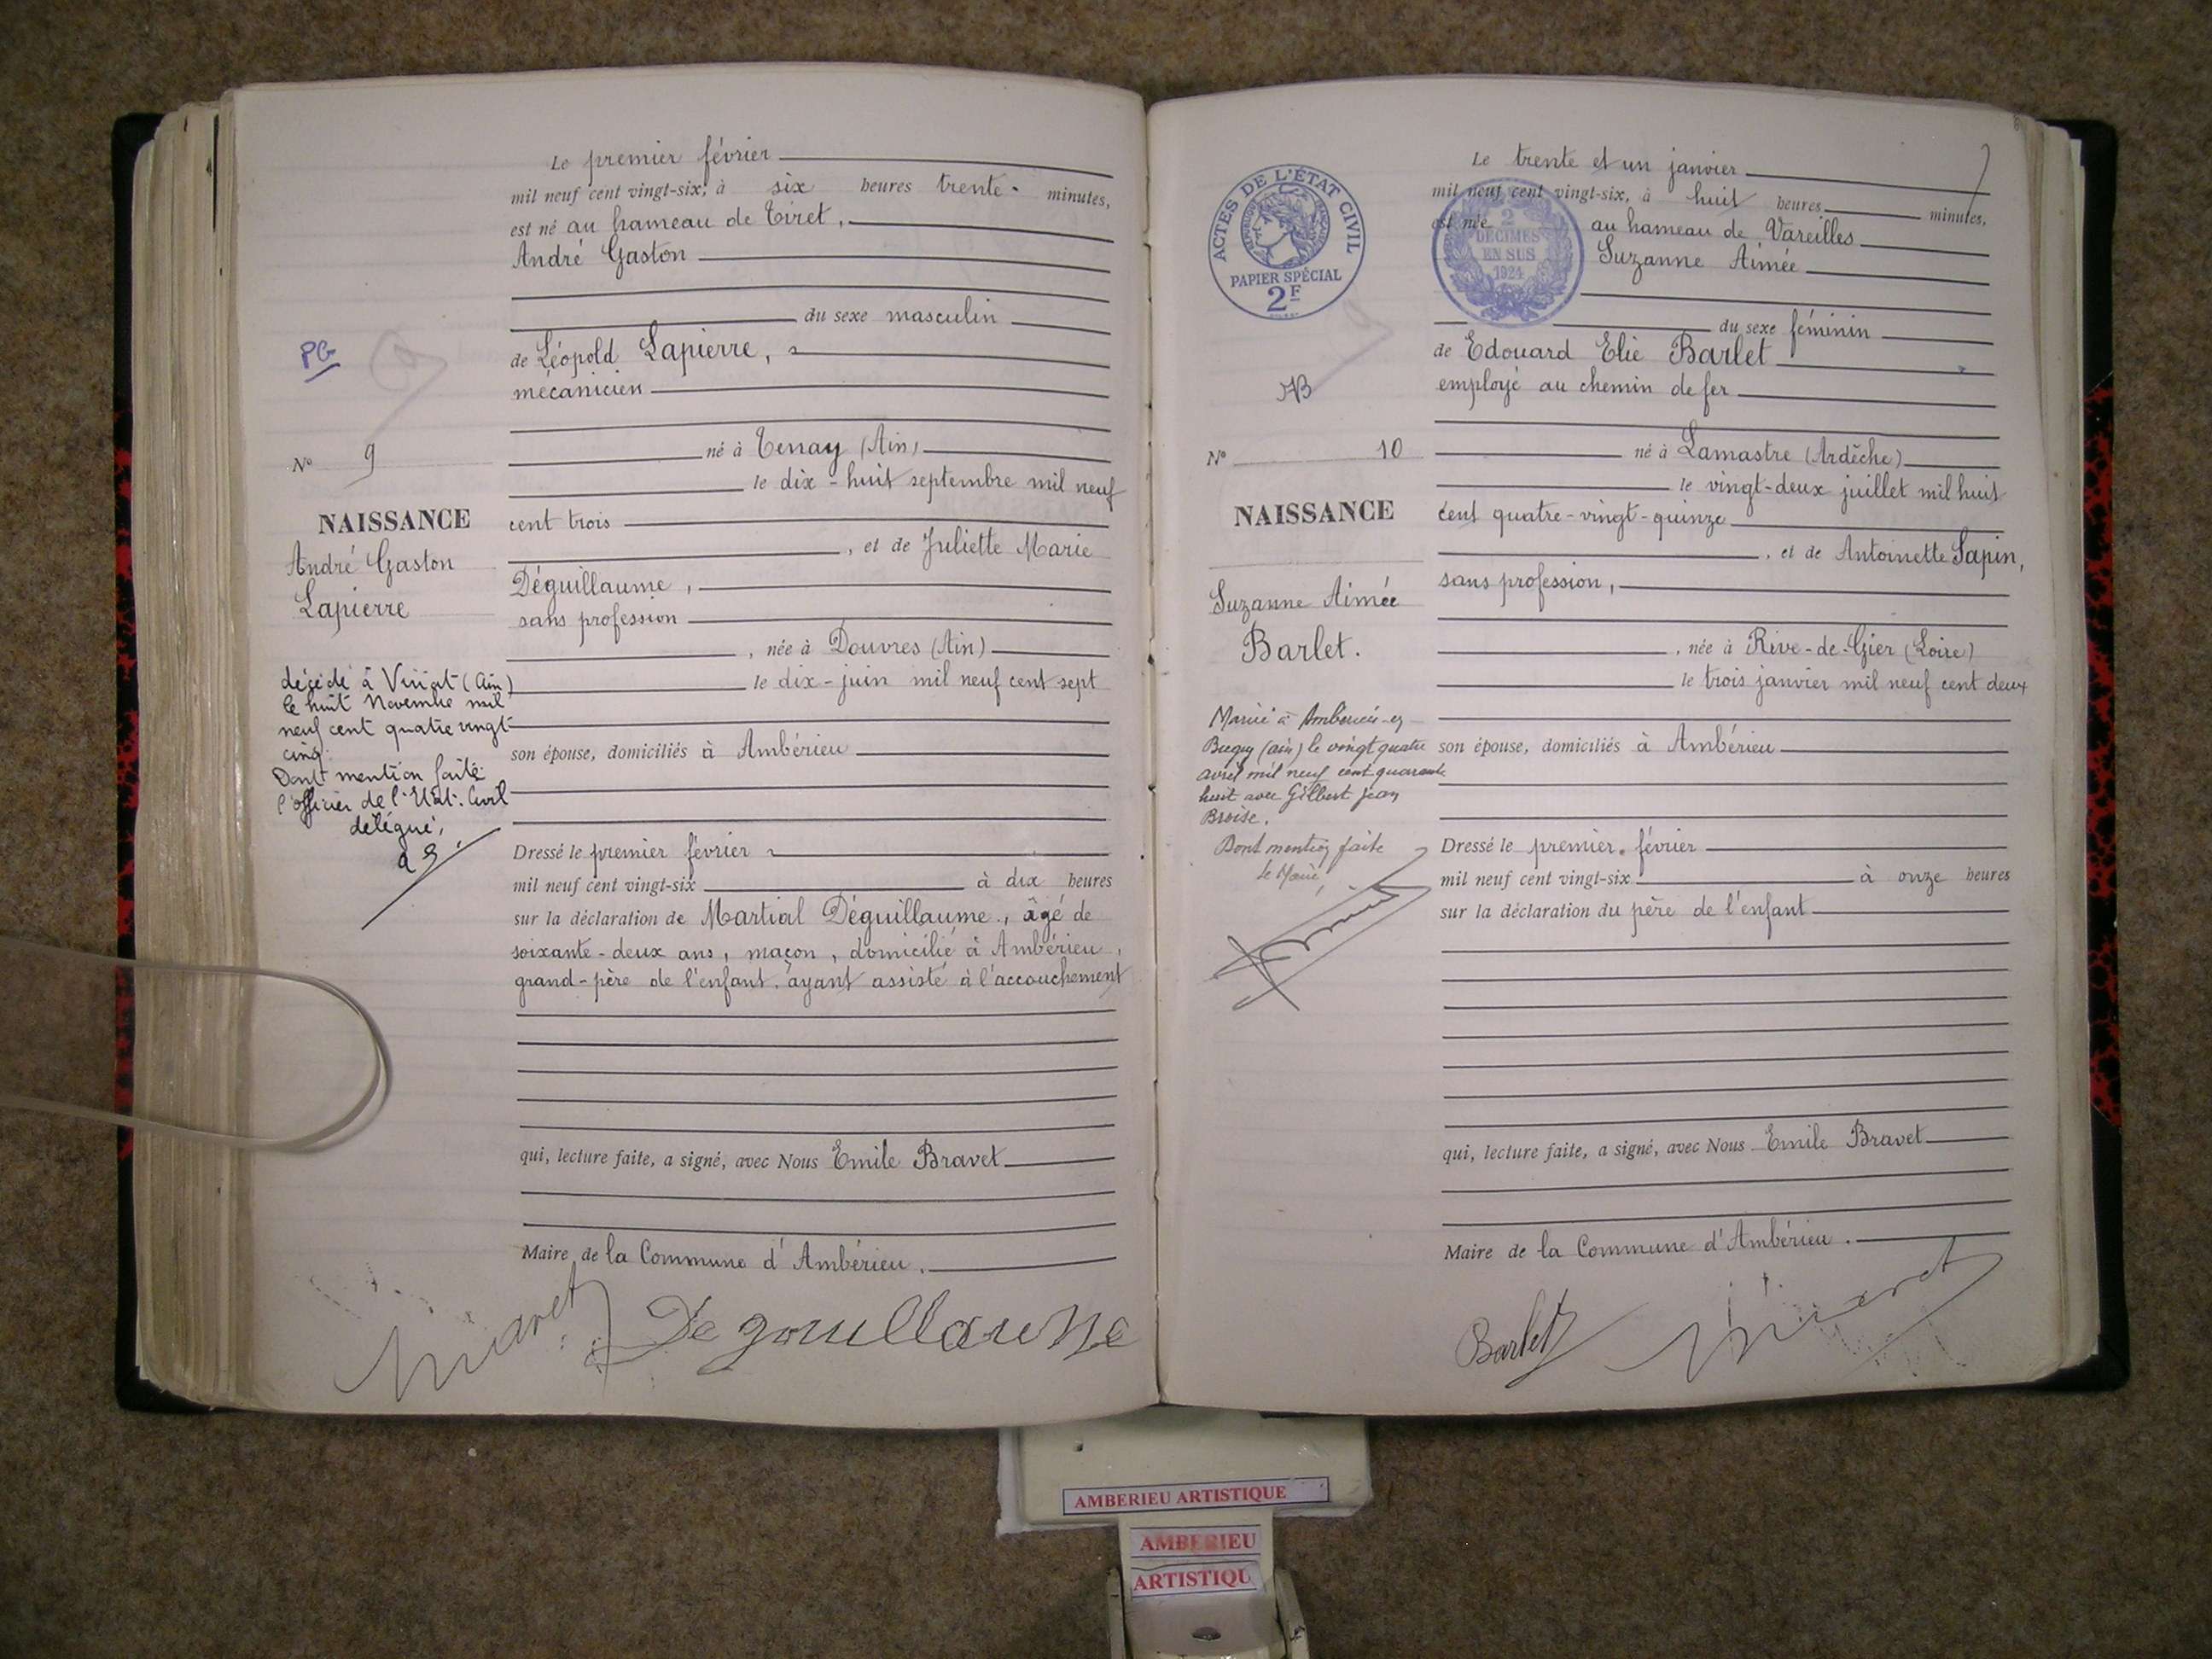 Le premier février
mil neuf cent vingt-six, à six heures trente minutes,
est né au hameau de Tiret,
André Gaston
du sexe masculin
de Léopold Lapierre,
mécanicien
né à Tenay (Ain)
le dix-huit septembre mil neuf
cent trois
, et de Juliette Marie
Déguillaume,
sans profession
, née à Douvres (Ain)
le dix-juin mil neuf cent sept
son épouse, domiciliés à Ambérieu
Dressé le premier février
mil neuf cent vingt-six à dix heures
sur la déclaration de Martial Déguillaume, âgé de
soixante-deux ans, maçon, domicilié à Ambérieu,
grand-père de l'enfant, ayant assisté à l'accouchement
qui, lecture faite, a signé, avec Nous Emile Bravet
Maire de la Commune d'Ambérieu.
PG
N° 9
NAISSANCE
André Gaston
Lapierre
décédé à Viriat (Ain)
le huit Novembre mil
neuf cent quatre vingt
cinq.
Dont mention faite
l'officier de l'Etat. Civil
délégué,
Deguillaume
7
Le trente et un janvier
mil neuf cent vingt-six, à huit heures minutes,
est née au hameau de Vareilles
Suzanne Aimée
du sexe féminin
de Edouard Elie Barlet
employé au chemin de fer
né à Lamastre (Ardèche)
le vingt-deux juillet mil huit
cent quatre-vingt-quinze
, et de Antoinette Sapin,
sans profession,
, née à Rive-de-Gier (Loire)
le trois janvier mil neuf cent deux
son épouse, domiciliés à Ambérieu
Dressé le premier février
mil neuf cent vingt-six à onze heures
sur la déclaration du père de l'enfant
qui, lecture faite, a signé, avec Nous Emile Bravet
Maire de la Commune d'Ambérieu.
ACTES DE L'ÉTAT CIVIL
RÉPUBLIQUE FRANÇAISE
PAPIER SPÉCIAL
2F
2
DÉCIMES
EN SUS
1924
N° 10
NAISSANCE
Suzanne Aimée
Barlet.
Mariée à Ambérieu-en
Bugey (ain) le vingt quatre
avril mil neuf cent quarante
huit avec Gilbert Jean
Broise.
Dont mention faite
Le Maire,
Barlet
AMBERIEU ARTISTIQUE
AMBERIEU
ARTISTIQU